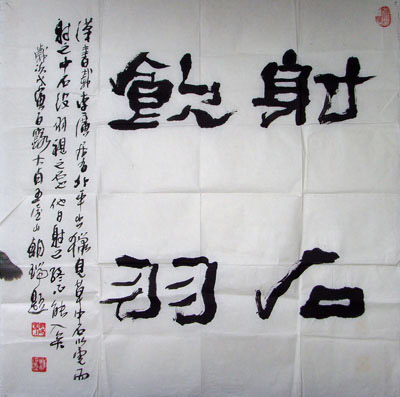 射石
飲羽
漢書載李廣居北平出獵見草中石以虎而
射之中石沒羽視之他日射之終不能入矣
歲次戊寅白露山朝瑞題